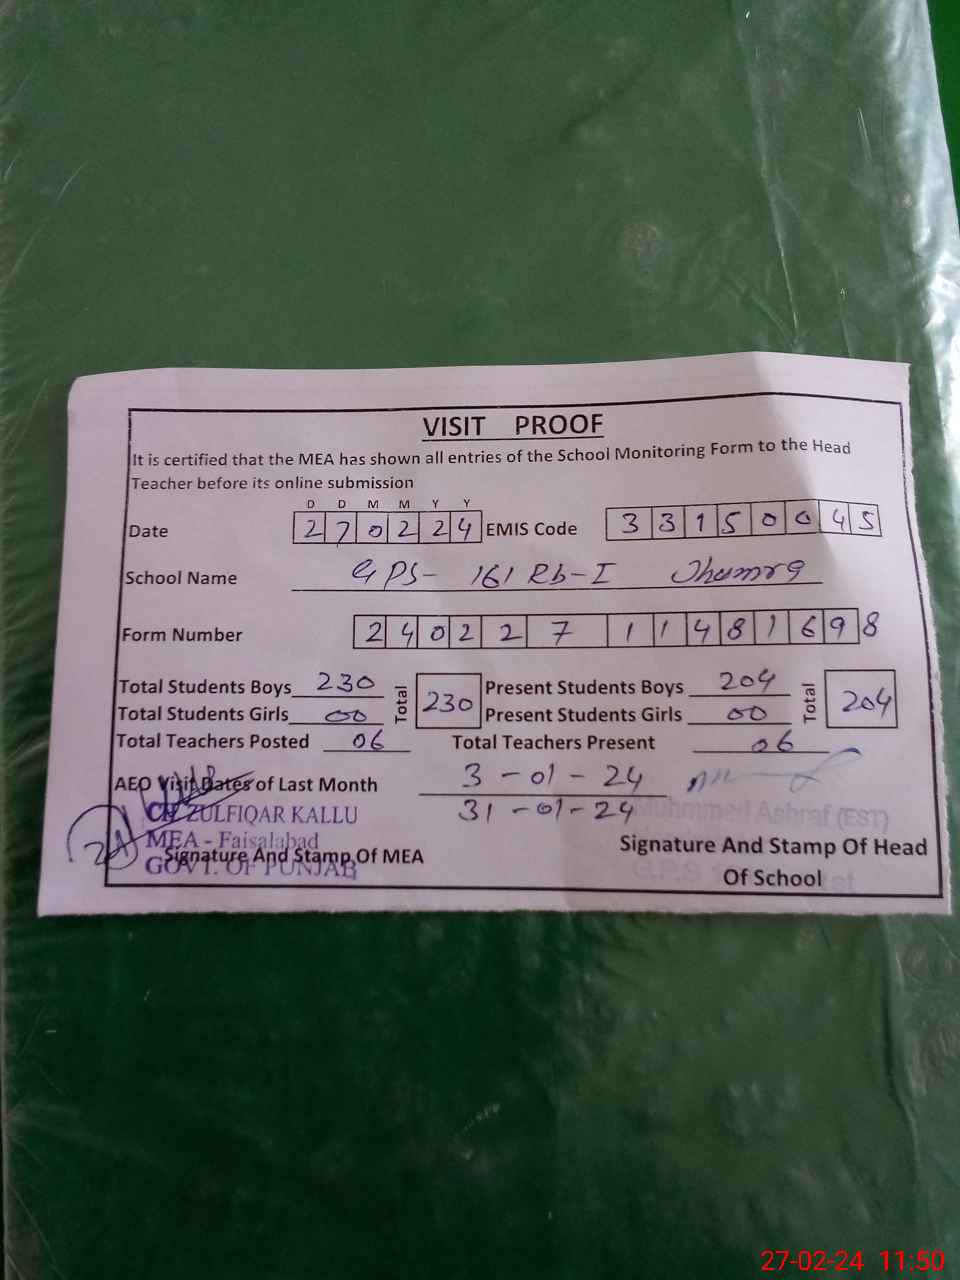 VISIT PROOF
It is certified that the MEA has shown all entries of the School Monitoring Form to the Head
Teacher before its online submission
D D M M Y Y
Date 270224 EMIS Code 33150045
School Name GPS- 161 Rb-I Jhumra
Form Number 24022711481698
Total Students Boys 230 Total 230 Present Students Boys 204 Total 204
Total Students Girls 00 Present Students Girls 00
Total Teachers Posted 06 Total Teachers Present 06
AEO Visit Dates of Last Month 3-01-24
31-01-24
CH ZULFIQAR KALLU
MEA - Faisalabad
GOVT. OF PUNJAB
Signature And Stamp Of MEA
Muhmmed Ashraf (EST)
G.P.S
Signature And Stamp Of Head
Of School
27-02-24 11:50